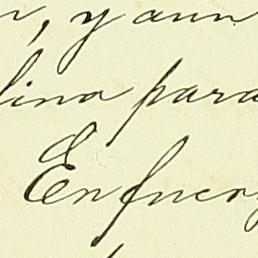 , y aun
lina para
En fuer